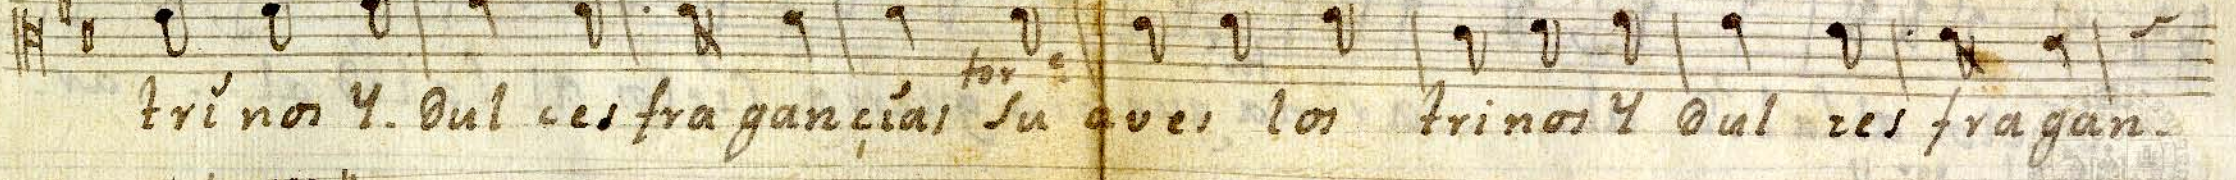 tor
trinos Y. Dul ces fra gan çias Su aves los trinos Y Dul zes fra gan-